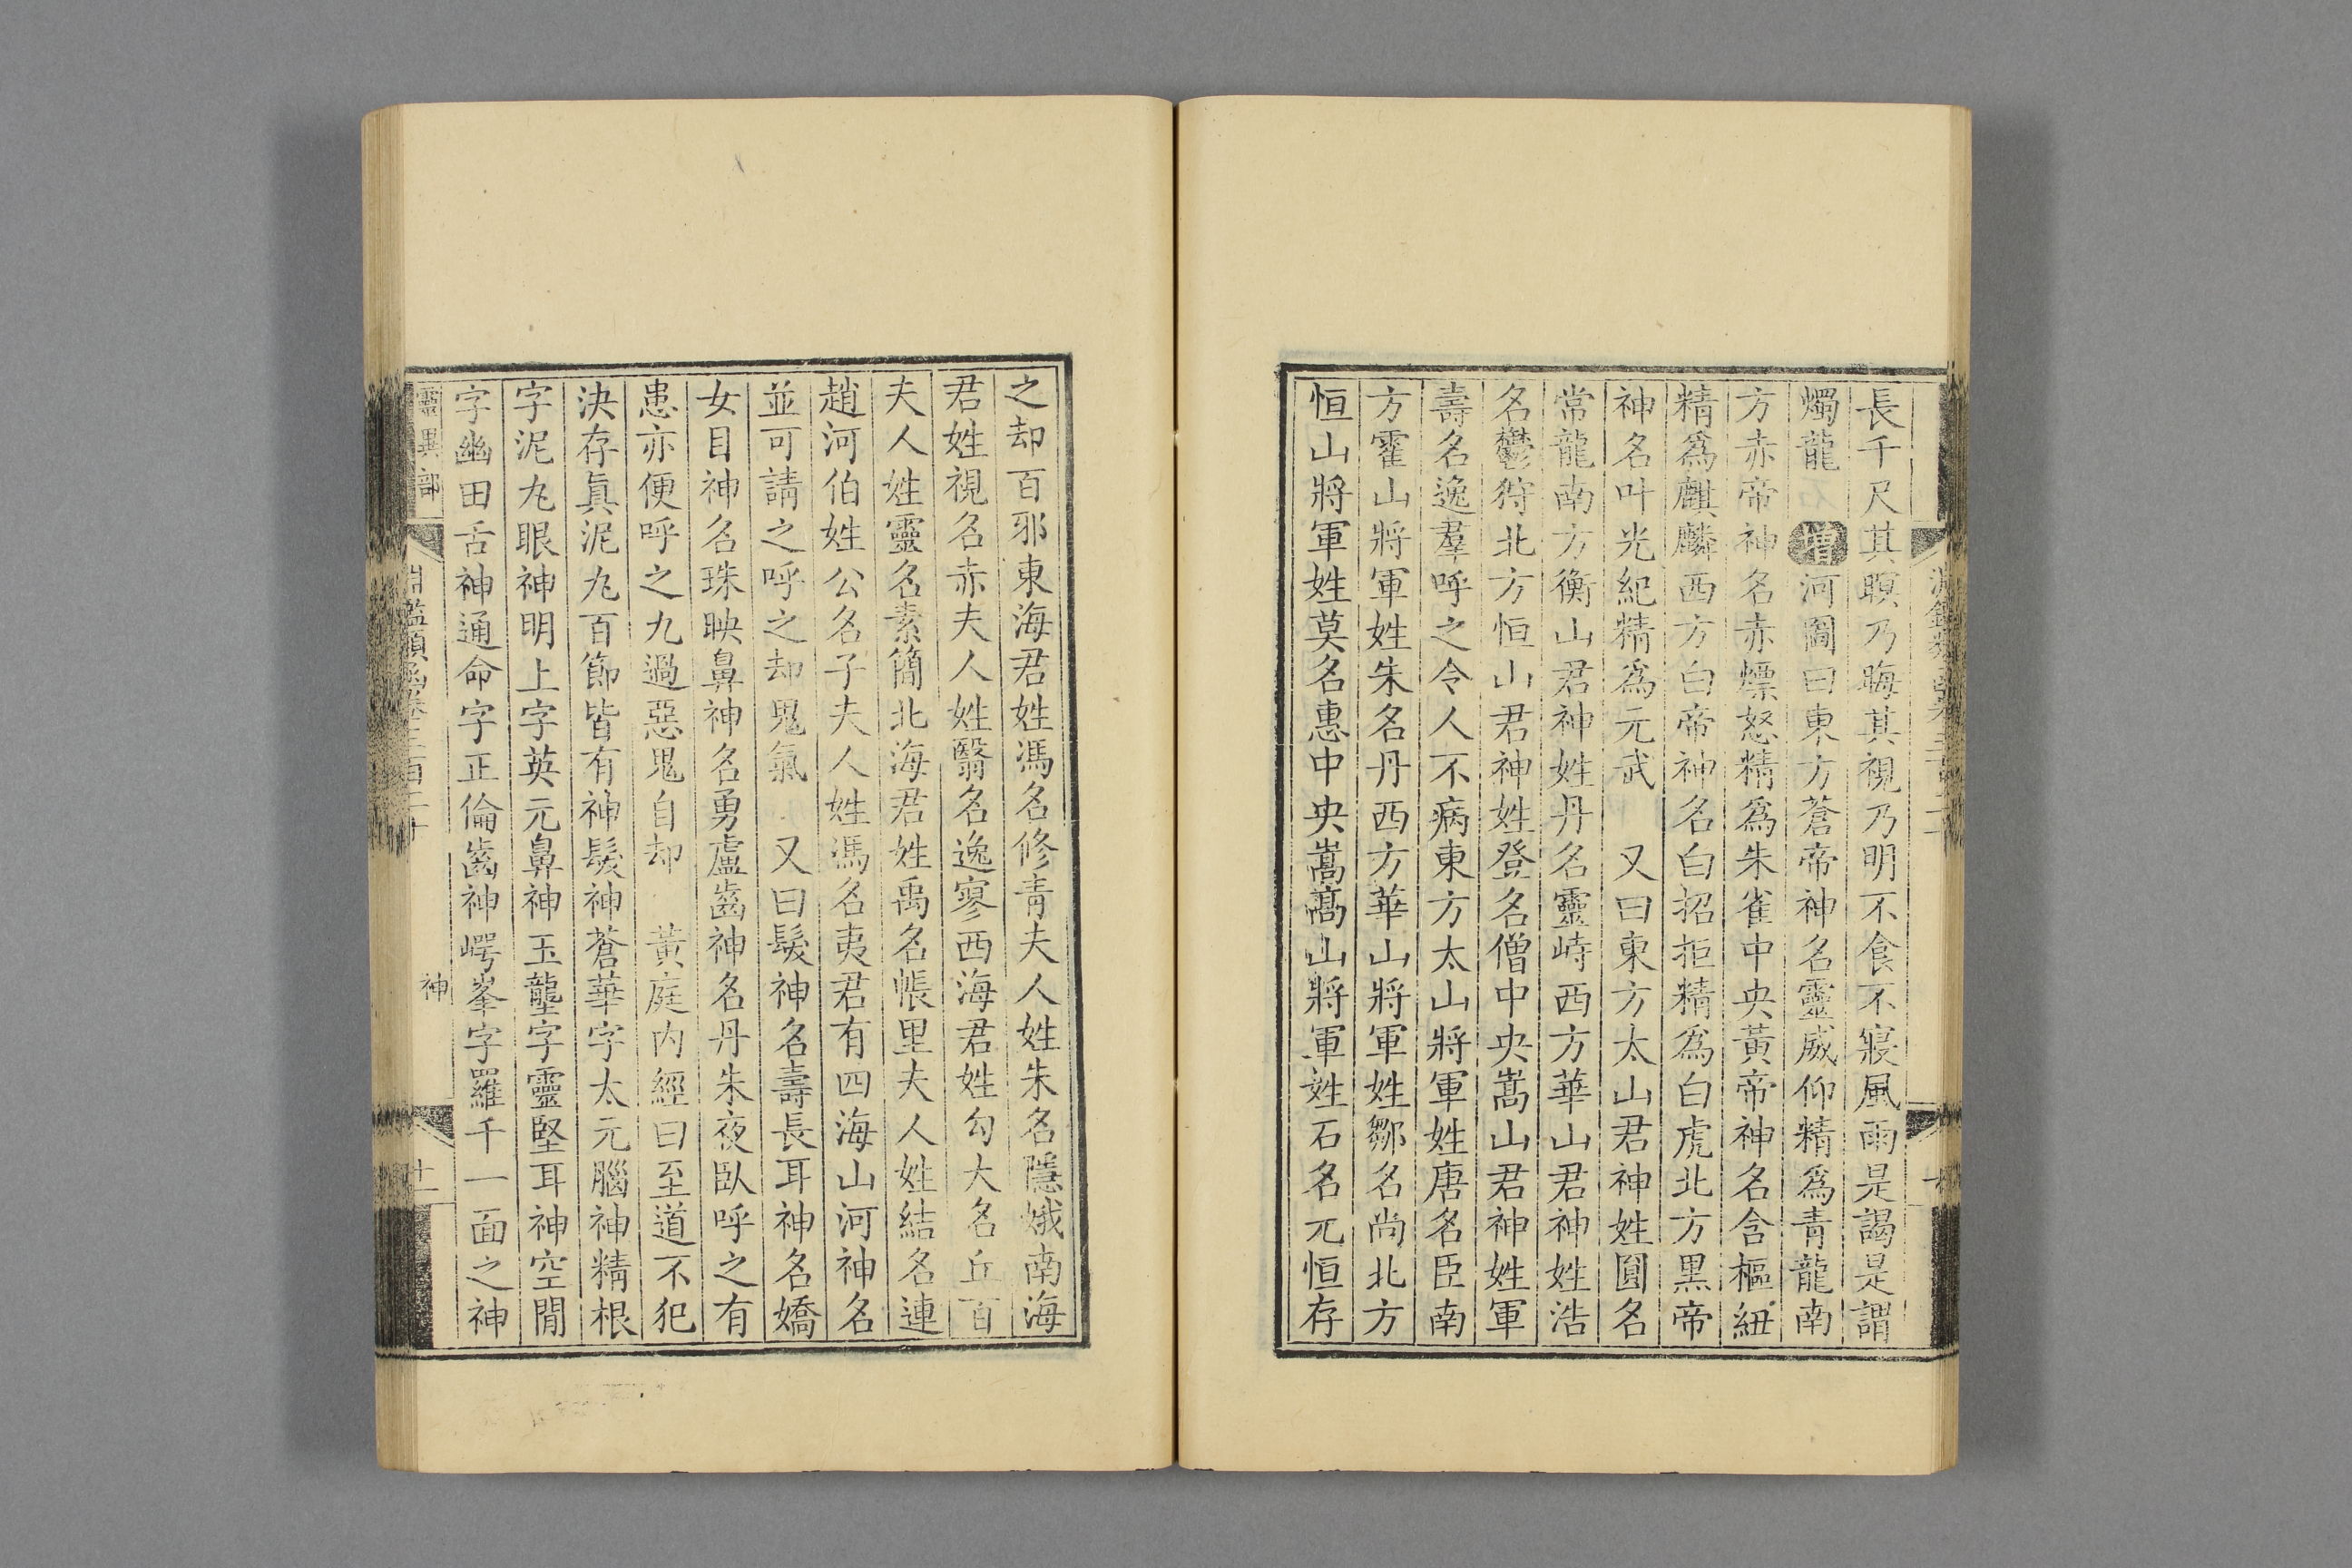 長千尺其瞑乃晦其視乃明不食不寢風雨是謁是謂
燭龍 增河圖曰東方蒼帝神名靈威仰精爲青龍南
方赤帝神名赤熛怒精爲朱雀中央黃帝神名含樞紐
精爲麒麟西方白帝神名白招拒精爲白虎北方黑帝
神名叶光紀精爲元武 又曰東方太山君神姓圓名
常龍南方衡山君神姓丹名靈峙西方華山君神姓浩
名鬱狩北方恒山君神姓登名僧中央嵩山君神姓軍
壽名逸羣呼之令人不病東方太山將軍姓唐名臣南
方霍山將軍姓朱名丹西方華山將軍姓鄒名尚北方
恒山將軍姓莫名惠中央嵩高山將軍姓石名元恒存
之却百邪東海君姓馮名修青夫人姓朱名隱娥南海
君姓視名赤夫人姓翳名逸寥西海君姓勾大名丘百
夫人姓靈名素簡北海君姓禹名帳里夫人姓結名連
趙河伯姓公名子夫人姓馮名夷君有四海山河神名
並可請之呼之却鬼氣 又曰髮神名壽長耳神名嬌
女目神名珠映鼻神名勇盧齒神名丹朱夜臥呼之有
患亦便呼之九過惡鬼自却 黃庭內經曰至道不犯
決存眞泥丸百節皆有神髮神蒼華字太元腦神精根
字泥丸眼神明上字英元鼻神玉壟字靈堅耳神空閒
字幽田舌神通命字正倫齒神崿峯字羅千一面之神
靈異部 淵鑑類函卷三百二十 神 十一